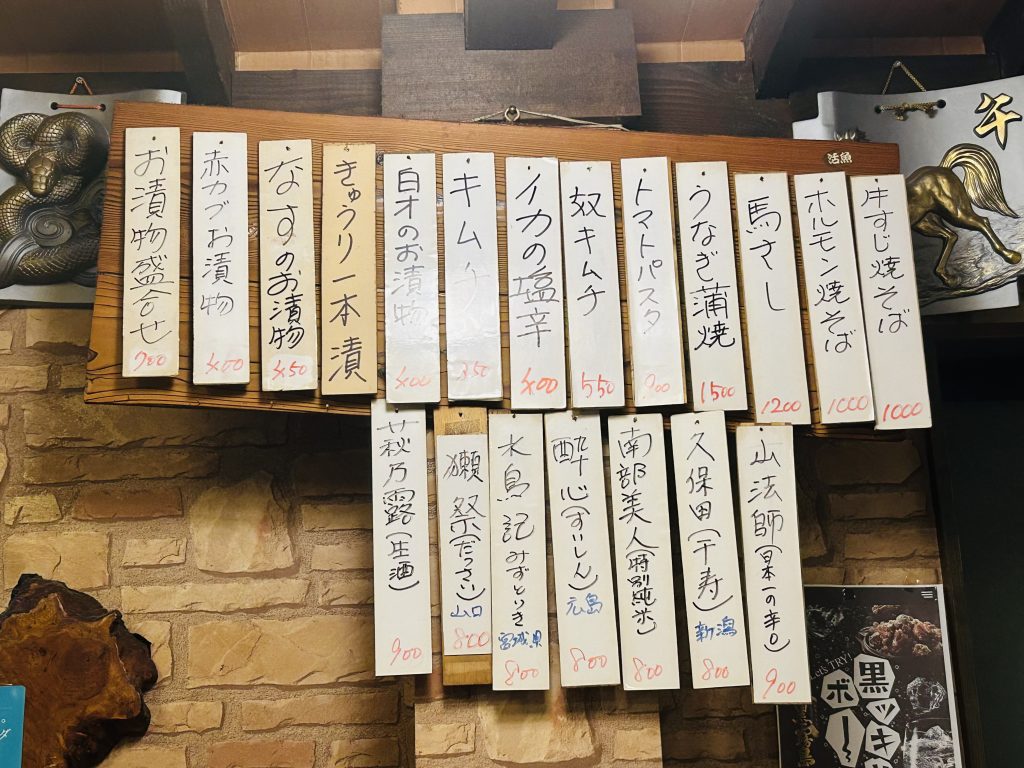 午
活魚
牛すじ焼そば
1000
ホルモン焼そば
1000
馬さし
1200
うなぎ蒲焼
1500
トマトパスタ
900
奴キムチ
550
イカの塩辛
400
キムチ
350
白才のお漬物
400
きゅうり一本漬
なすのお漬物
450
赤カブお漬物
400
お漬物盛合せ
700
山法師(日本一の辛口)
900
久保田(千寿)
新潟
800
南部美人(特別純米)
800
酔心(すいしん)
広島
800
水鳥記みずとりき
宮城県
800
獺祭(だっさい)
山口
800
萩乃露(生酒)
900
Let's TRY!
黒ッキ
ボー